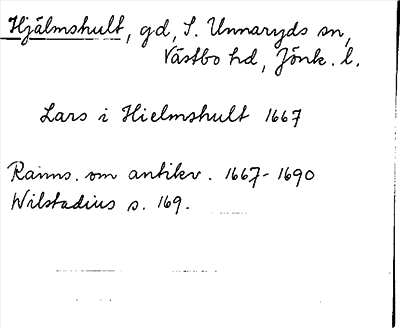 Hjälmshult, gd, S. Unnaryds sn,
Västbo hd, Jönk. l.
Lars i Hielmshult 1667
Ranns. om antikv. 1667-1690
Wilstadius s. 169.